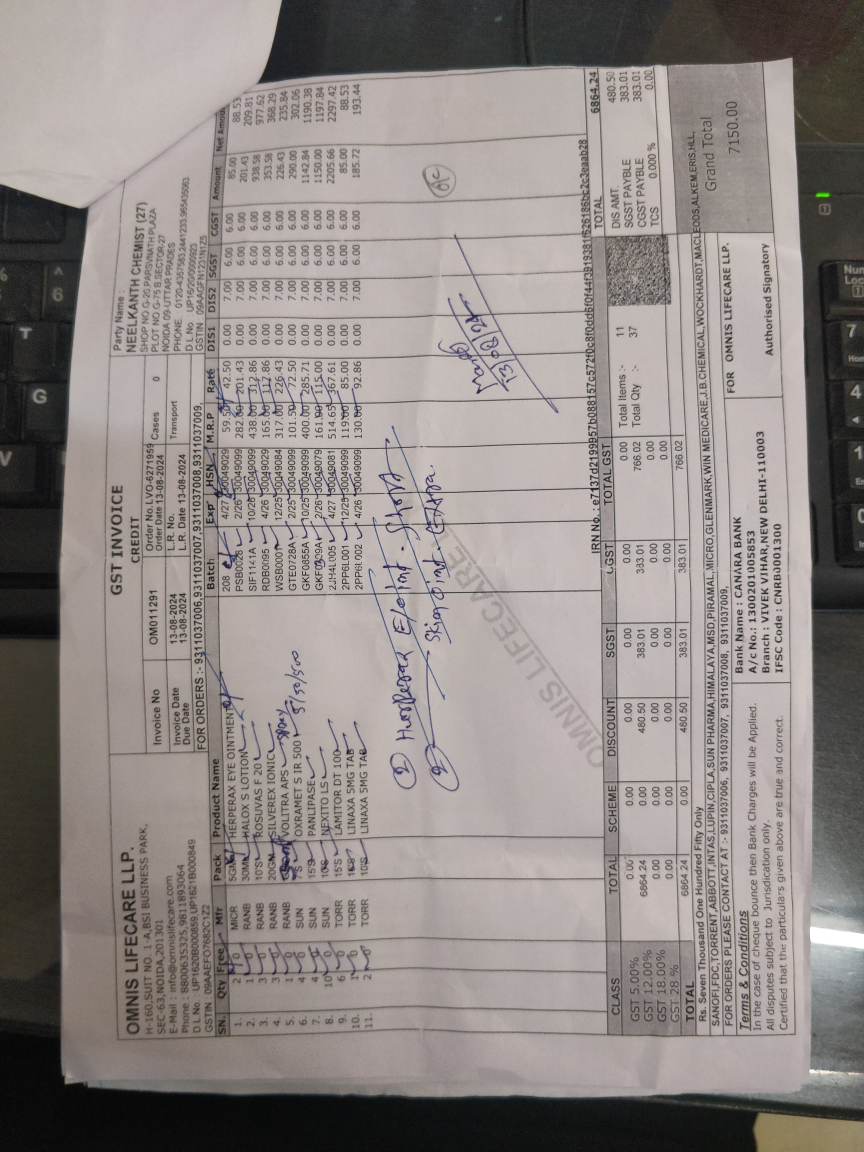 OMNIS LIFECARE LLP.
H-160,SUIT NO. 1-A,BSI BUSINESS PARK,
SEC-63,NOIDA,201301
E-Mail : info@omnislifecare.com
Phone : 8800635325,9811893064
D.L.No. UP1620B000859,UP1621B000849
GSTIN 09AAEFO7682C1Z2
GST INVOICE
CREDIT
Invoice No OM011291 Order No.LVO-6271959
Order Date 13-08-2024 Cases 0
Invoice Date 13-08-2024 L.R. No.
Due Date 13-08-2024 L.R. Date 13-08-2024 Transport
FOR ORDERS :- 9311037006,9311037007,9311037008,9311037009,
Party Name :
NEELKANTH CHEMIST (27)
SHOP NO G-20 PARSVNATH PLAZA
PLOT NO G-75 B,SECTOR-27
NOIDA 09-UTTAR PRADES
PHONE
D.L.No.
GSTIN
SN. Qty Free Mfr Pack Product Name Batch Exp HSN M.R.P Rate DIS1 DIS2 SGST CGST Amount Net Amou
1. 2 0 MICR 5GM HERPERAX EYE OINTMENT 208 4/27 30049029 59.50 42.50 0.00 7.00 6.00 6.00 85.00 88.53
2. 1 0 RANB 30ML HALOX S LOTION PSB0028 2/26 30049099 282.00 201.43 0.00 7.00 6.00 6.00 201.43 209.81
3. 3 0 RANB 10'S ROSUVAS F 20 SIF1141A 10/26 30049099 438.00 312.86 0.00 7.00 6.00 6.00 938.58 977.62
4. 3 0 RANB 20GM SILVEREX IONIC RDB0095 4/26 30049029 165.00 117.86 0.00 7.00 6.00 6.00 353.58 368.29
5. 1 0 RANB VOLITRA APS WSB0001 12/25 30049084 317.00 226.43 0.00 7.00 6.00 6.00 226.43 235.84
6. 4 0 SUN 7'S OXRAMET S IR 500 GTE0728A 2/25 30049099 101.50 72.50 0.00 7.00 6.00 6.00 290.00 302.06
7. 4 0 SUN 15'S PANLIPASE GKF0855A 10/25 30049099 400.00 285.71 0.00 7.00 6.00 6.00 1142.84 1190.38
8. 10 0 SUN 10'S NEXITO LS 2/26 30049079 161.00 115.00 0.00 7.00 6.00 6.00 1150.00 1197.84
9. 6 0 TORR 15'S LAMITOR DT 100 2JH4L005 4/27 30049081 514.65 367.61 0.00 7.00 6.00 6.00 2205.66 2297.42
10. 1 0 TORR 10'S LINAXA 5MG TAB 2PP6L001 12/25 30049099 119.00 85.00 0.00 7.00 6.00 6.00 85.00 88.53
11. 2 0 TORR 10'S LINAXA 5MG TAB 2PP6L002 4/26 30049099 130.00 92.86 0.00 7.00 6.00 6.00 185.72 193.44
spray
5/50/500
① Eye oint. Short
② Skin oint. Extra.
13/08/24
OMNIS LIFECARE
CLASS TOTAL SCHEME DISCOUNT SGST CGST TOTAL GST
GST 5.00% 0.00 0.00 0.00 0.00 0.00 0.00
GST 12.00% 6864.24 0.00 480.50 383.01 383.01 766.02
GST 18.00% 0.00 0.00 0.00 0.00 0.00 0.00
GST 28 % 0.00 0.00 0.00 0.00 0.00 0.00
TOTAL 6864.24 0.00 480.50 383.01 383.01 766.02
Total Items :- 11
Total Qty :- 37
TOTAL 6864.24
DIS AMT. 480.50
SGST PAYBLE 383.01
CGST PAYBLE 383.01
TCS 0.000 % 0.00
Rs. Seven Thousand One Hundred Fifty Only
Grand Total
7150.00
SANOFI,FDC,TORRENT,ABBOTT,INTAS,LUPIN,CIPLA,SUN PHARMA,HIMALAYA,MSD,PIRAMAL,MICRO,GLENMARK,WIN MEDICARE,J.B.CHEMICAL,WOCKHARDT,MACLEODS,ALKEM,ERIS,HLL,
FOR ORDERS PLEASE CONTACT AT :- 9311037006, 9311037007, 9311037008, 9311037009,
Terms & Conditions
In the case of cheque bounce then Bank Charges will be Applied.
All disputes subject to Jurisdication only.
Certified that the particulars given above are true and correct.
Bank Name : CANARA BANK
A/c No.: 1300201005853
Branch : VIVEK VIHAR,NEW DELHI-110003
IFSC Code : CNRB0001300
FOR OMNIS LIFECARE LLP.
Authorised Signatory